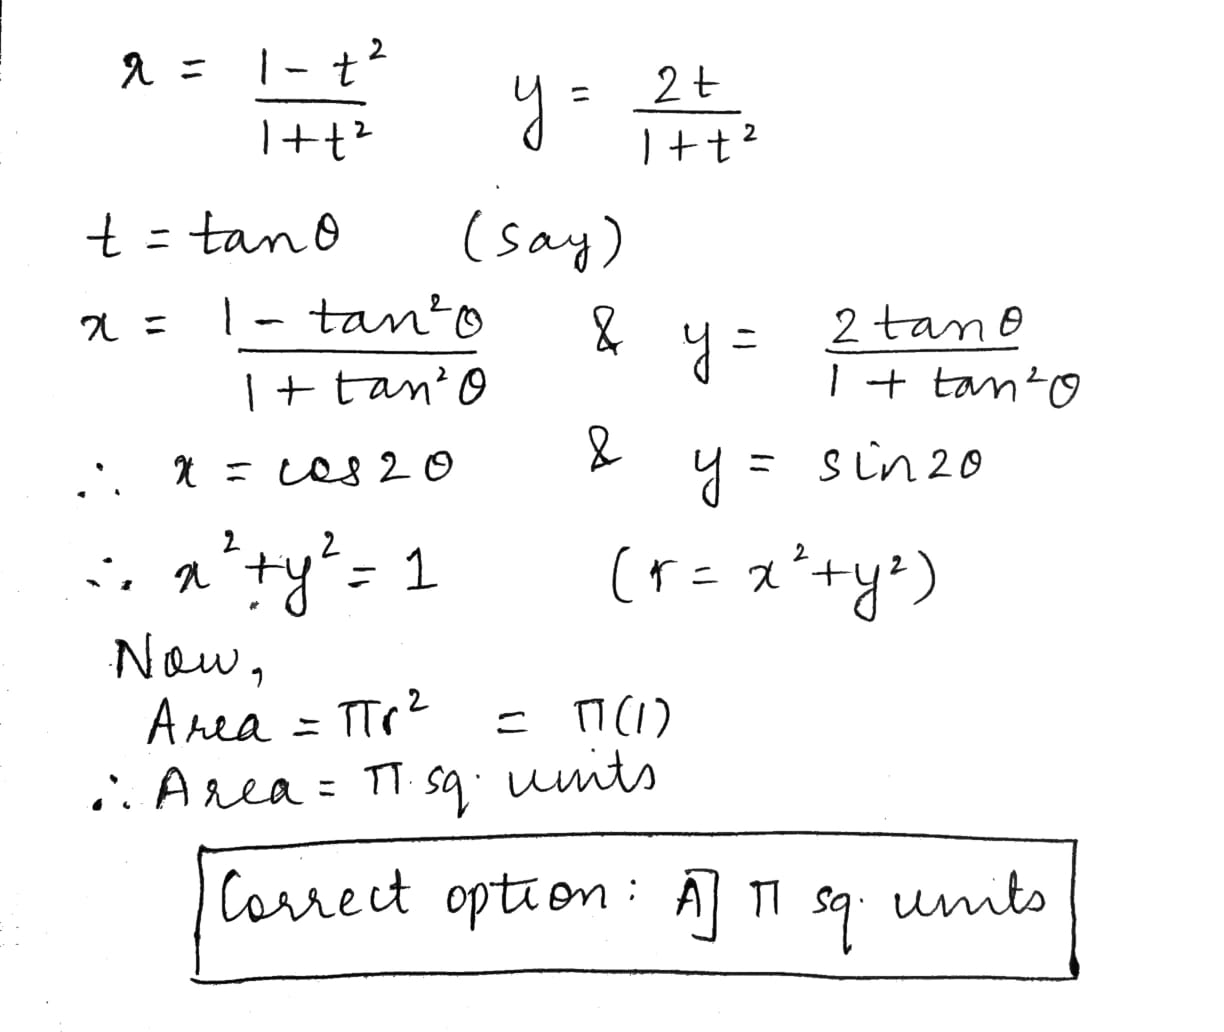 x = 1 - t² / 1 + t²    y = 2t / 1 + t²
t = tanθ (say)
x = 1 - tan²θ / 1 + tan²θ & y = 2 tanθ / 1 + tan²θ
∴ x = cos 2θ & y = sin 2θ
∴ x² + y² = 1 (r = x² + y²)
Now,
Area = πr² = π(1)
∴ Area = π sq. units
Correct option: A] π sq. units